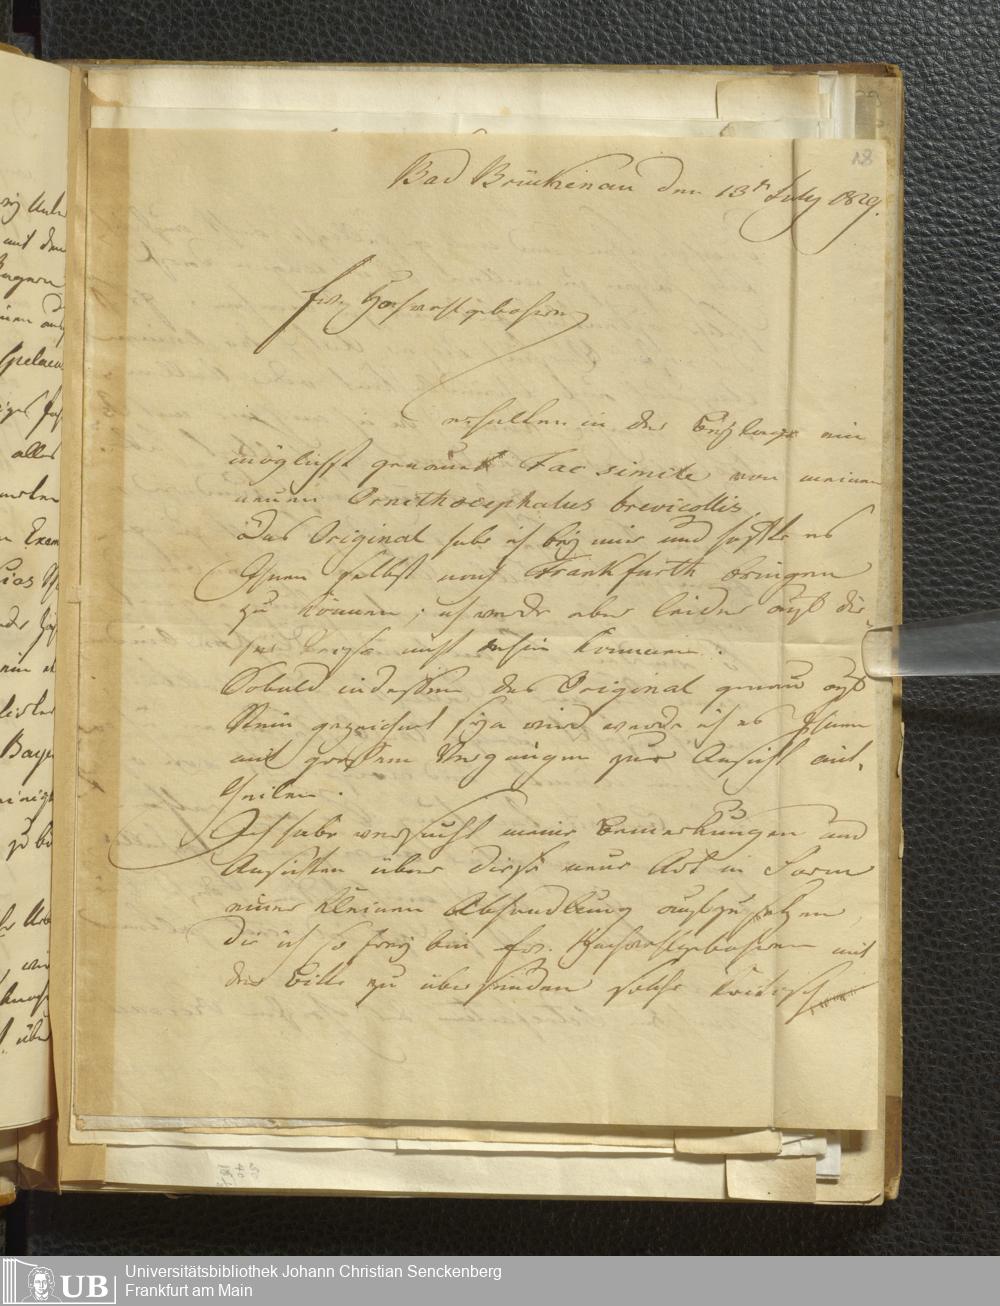 18
Bad Brückenau den 13ⁿ July 1829.
Euer Hochwohlgebohren
erhalten in der Beylage ein
möglichst genaues Fac simile von meinem
neuen Ornithocephalus brevicollis.
Das Original habe ich bey mir und hoffte es
Ihnen selbst nach Frankfurth bringen
zu können; ich werde aber leider auf die-
ser Reise nicht dahin kommen.
Sobald indessen das Original genau auf
Stein gezeichnet seyn wird werde ich es Ihnen
mit großem Vergnügen zur Ansicht mit-
theilen.
Ich habe versucht meine Bemerkungen und
Ansichten über diese neue Art in Form
einer kleinen Abhandlung aufzusetzen,
die ich so frey bin Ew. Hochwohlgebohren mit
der Bitte zu übersenden solche kritisch
Universitätsbibliothek Johann Christian Senckenberg
Frankfurt am Main
UB